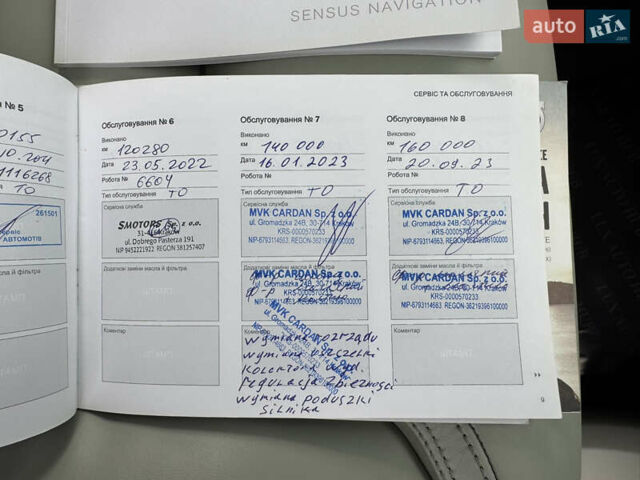 SENSUS NAVIGATION
auto RIA .com
№ 5
СЕРВІС ТА ОБСЛУГОВУВАННЯ
0155
1116268
ТО
261501
АВТОМОТІВ
Обслуговування № 6
Виконано
км 120280
Дата 23.05.2022
Робота № 6604
Тип обслуговування ТО
Сервісна служба
SMOTORS Sp. z o.o.
ul. Dobrego Pasterza 191
NIP 9452221922 REGON 381257407
Додаткові заміни масла й фільтра
ШТАМП
Коментар
ШТАМП
Обслуговування № 7
Виконано
км 140 000
Дата 16.01.2023
Робота №
Тип обслуговування ТО
Сервісна служба
MVK CARDAN Sp. z o.o.
ul. Gromadzka 24B, 30-714 Kraków
KRS-0000570233
NIP-6793114563, REGON-36219396100000
Додаткові заміни масла й фільтра
MVK CARDAN Sp. z o.o.
ul. Gromadzka 24B, 30-714 Kraków
KRS-0000570233
NIP-6793114563, REGON-36219396100000
MVK CARDAN Sp. z o.o.
Коментар
wymiana rozrządu
wymiana uszczelki
regulacja zbieżności
wymiana poduszki
silnika
Обслуговування № 8
Виконано
км 160 000
Дата 20.09.23
Робота №
Тип обслуговування ТО
Сервісна служба
MVK CARDAN Sp. z o.o.
ul. Gromadzka 24B, 30-714 Kraków
KRS-0000570233
NIP-6793114563, REGON-36219396100000
Додаткові заміни масла й фільтра
MVK CARDAN Sp. z o.o.
ul. Gromadzka 24B, 30-714 Kraków
KRS-0000570233
NIP-6793114563, REGON-36219396100000
Коментар
ШТАМП
9